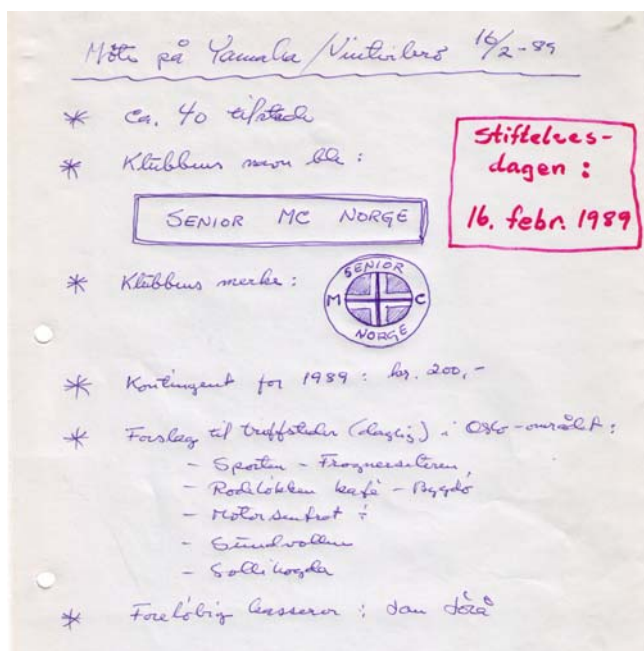 Møte på Yamaha/Vinterbro 16/2-89
* Ca. 40 tilstede
Stiftelses-
dagen :
16. febr. 1989
* Klubbens navn ble :
SENIOR MC NORGE
* Klubbens merke :
SENIOR
M C
NORGE
* Kontingent for 1989 : kr. 200,-
* Forslag til treffsteder (daglig) i Oslo-området :
- Sporten - Frognerseteren,
- Rodeløkken kafè - Bygdø
- Motorsentret
- Sundvollen
- Sollihøgda
* Foreløbig kasserer : Jan